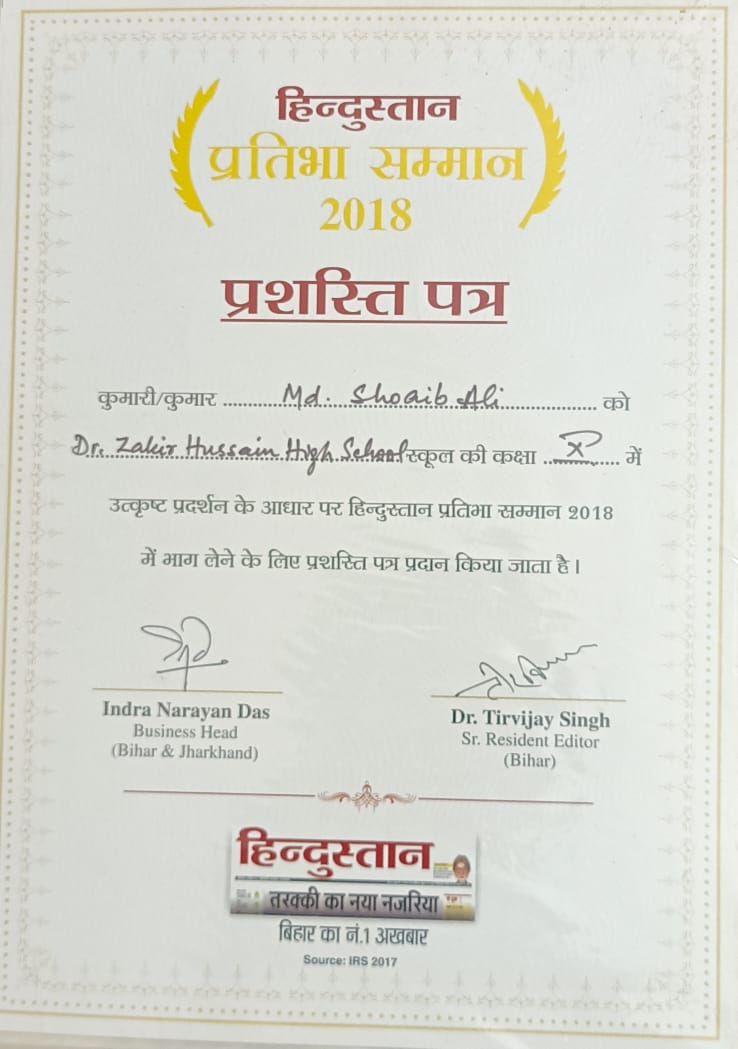 हिन्दुस्तान
प्रतिभा सम्मान
2018
प्रशस्ति पत्र
कुमारी/कुमार ........... Md. Shoaib Ali ................... को
Dr. Zakir Hussain High School स्कूल की कक्षा ..... X ..... में
उत्कृष्ट प्रदर्शन के आधार पर हिन्दुस्तान प्रतिभा सम्मान 2018
में भाग लेने के लिए प्रशस्ति पत्र प्रदान किया जाता है।
Indra Narayan Das
Business Head
(Bihar & Jharkhand)
Dr. Tirvijay Singh
Sr. Resident Editor
(Bihar)
हिन्दुस्तान
तरक्की का नया नजरिया
बिहार का नं.1 अखबार
Source: IRS 2017